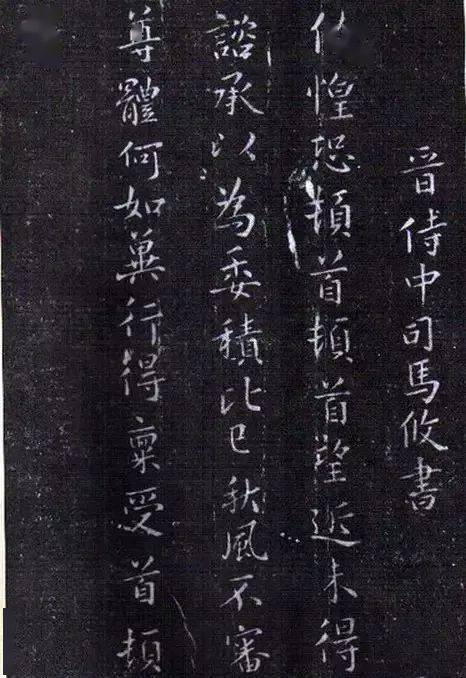 晋侍中司馬攸書
攸惶恐頓首頓首望近未得
諮承以為委積比已秋風不審
尊體何如冀行得稟受首頓